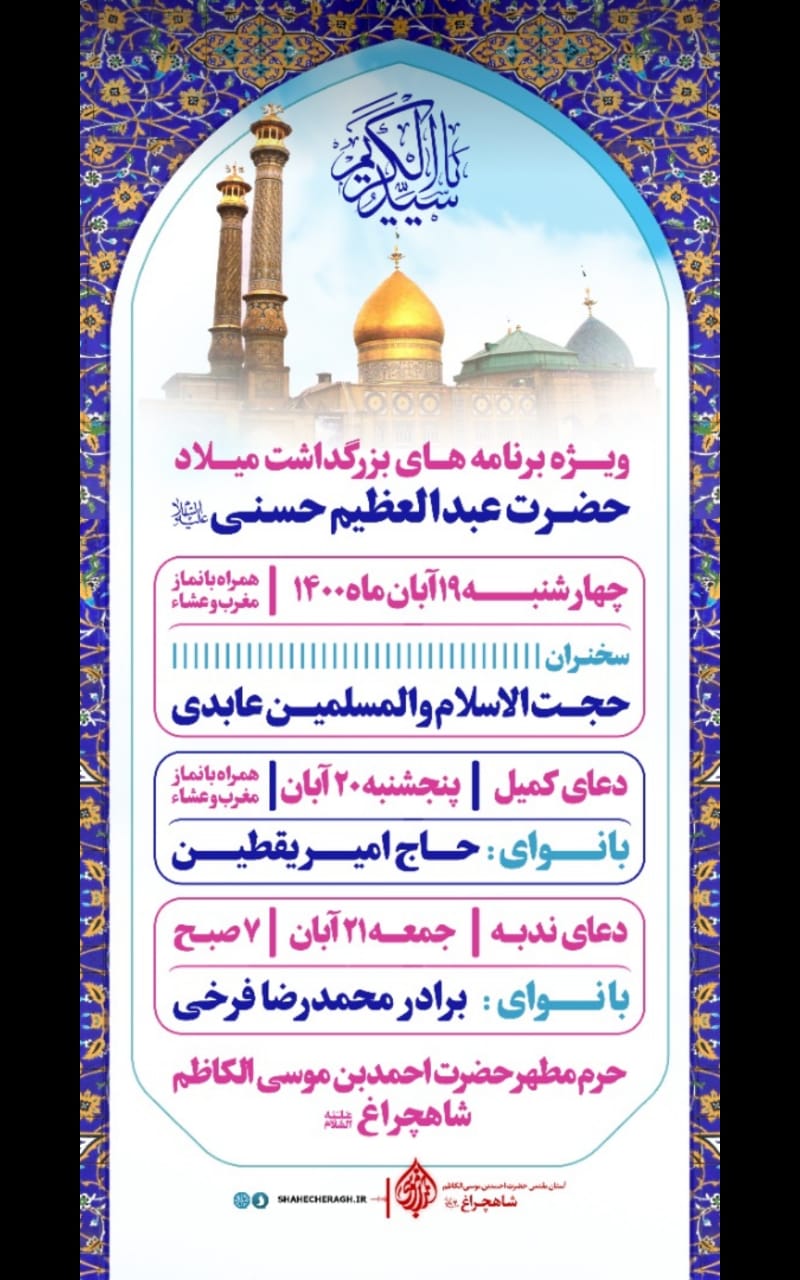 یا سیدالکریم
ویژه برنامه های بزرگداشت میلاد
حضرت عبدالعظیم حسنی علیه‌السلام
چهارشنبه ۱۹ آبان ماه ۱۴۰۰ | همراه با نماز مغرب و عشاء
سخنران
حجت الاسلام والمسلمین عابدی
دعای کمیل | پنجشنبه ۲۰ آبان | همراه با نماز مغرب و عشاء
بانوای : حاج امیر یقطین
دعای ندبه | جمعه ۲۱ آبان | ۷ صبح
بانوای : برادر محمدرضا فرخی
حرم مطهر حضرت احمدبن موسی الکاظم
شاهچراغ علیه السلام
آستان مقدس حضرت احمدبن موسی الکاظم
شاهچراغ
SHAHECHERAGH.IR